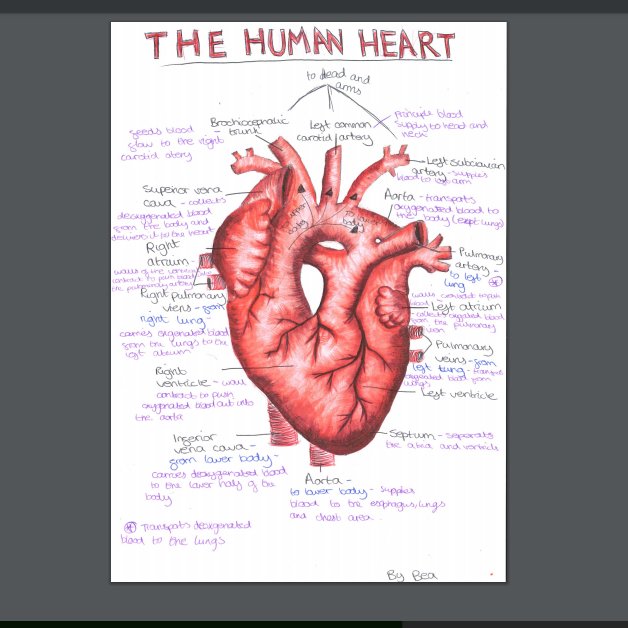 THE HUMAN HEART
to head and
arms
Brachiocephalic
trunk
feeds blood
flow to the right
carotid atery
Left common
carotid/artery
principle blood
supply to head and
neck
Left subclavian
artery - supplies
blood to left arm
Superior vena
cava - collects
deoxygenated blood
from the body and
delivers it to the heart
Aorta - transports
oxygenated blood to
the body (exept lungs)
upper
body
body
Right
atrium -
walls of the
contract to push blood
the pulmonary artery
Pulmonary
artery -
to left
lung
Right pulmonary
viens - from
right lung -
carries oxgenated blood
from the lungs to the
left atrium
walls contract to push
blood
Left atrium
- collects oxygenated blood
from the pulmonary
vien
Pulmonary
veins - from
left lung - transports
oxgenated blood from
lungs
Right
ventricle - wall
contract to push
oxygenated blood out into
the aorta
Left ventricle
Inferior
vena cava -
from lower body -
carries deoxygenated blood
to the lower half of the
body
Septum - seperates
the atria and ventricle
Aorta -
to lower body - supplies
blood to the esophagus, lungs
and chest area.
Transports deoxgenated
blood to the lungs
By Bea